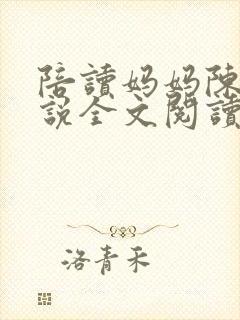 陪讀妈妈陳
說全文閱讀
洛青禾